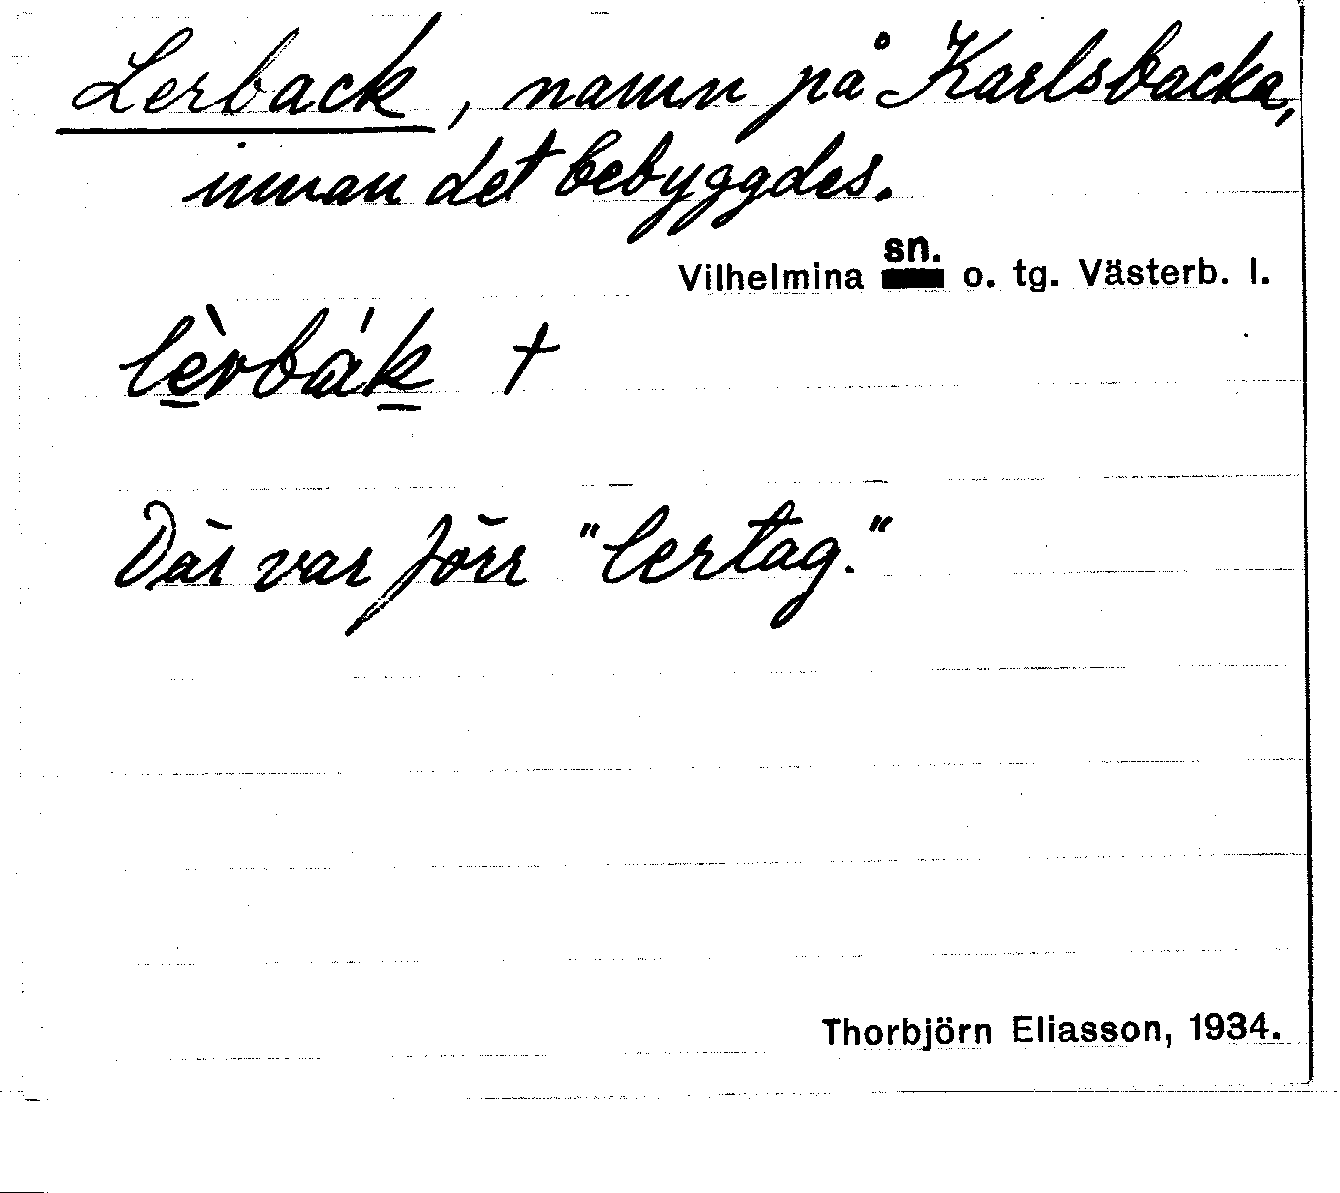 Lerback, namn på Karlsbacka,
innan det bebyggdes.
Vilhelmina sn. o. tg. Västerb. l.
lèrbák †
Där var förr "lertag."
Thorbjörn Eliasson, 1934.